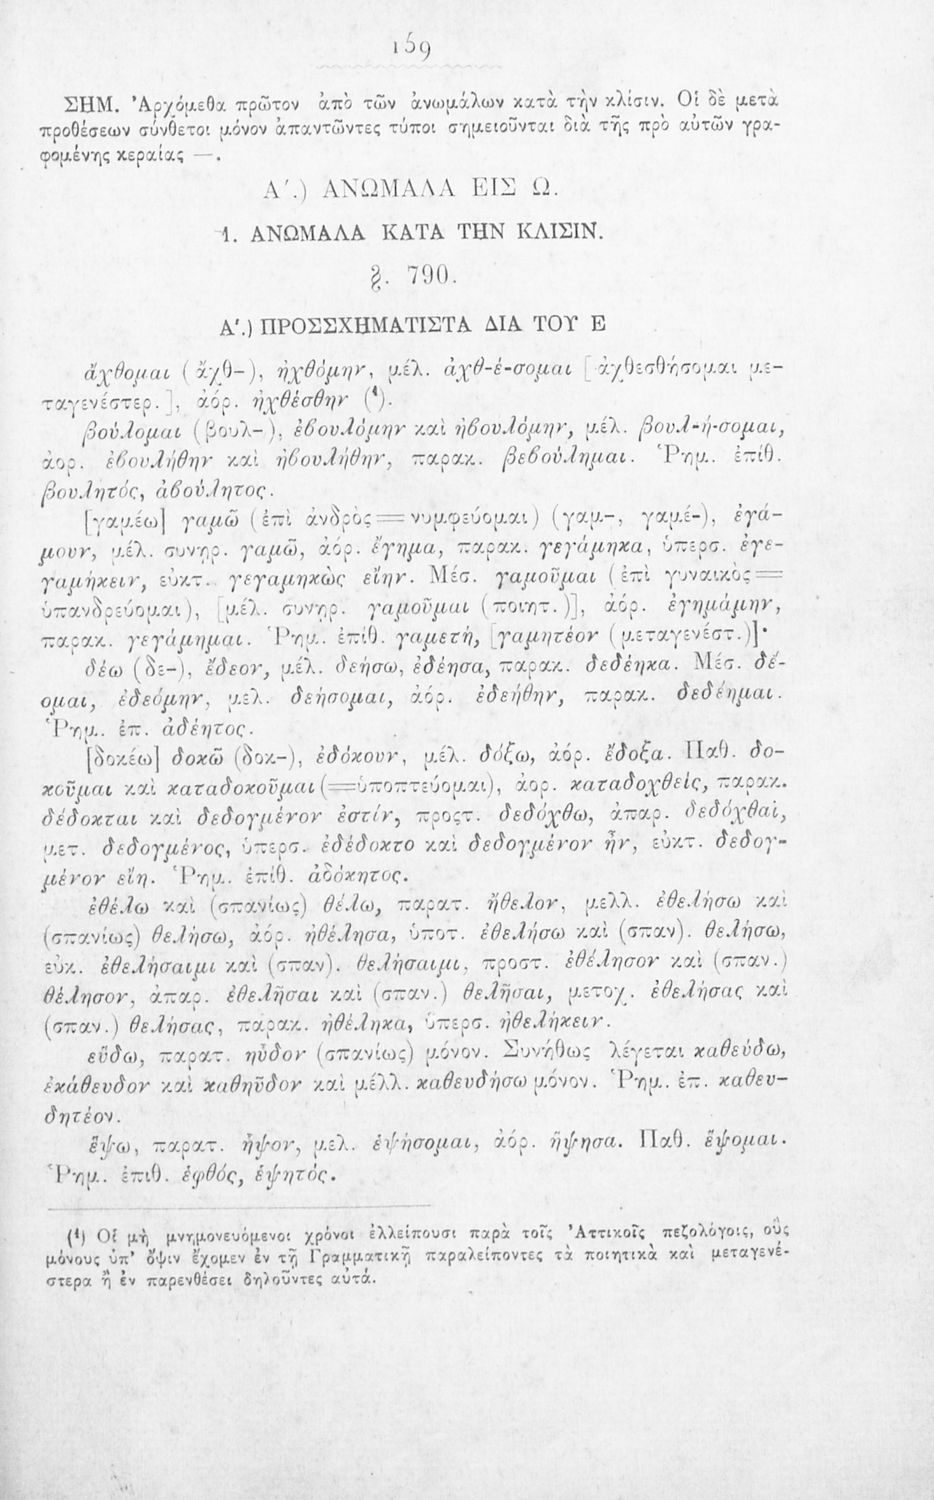 159
ΣΗΜ. Ἀρχόμεθα πρῶτον ἀπὸ τῶν ἀνωμάλων κατὰ τὴν κλίσιν. Οἱ δὲ μετὰ
προθέσεων σύνθετοι μόνον ἀπαντῶντες τύποι σημειοῦνται διὰ τῆς πρὸ αὐτῶν γρα-
φομένης κεραίας —.
Α΄.) ΑΝΩΜΑΛΑ ΕΙΣ Ω.
1. ΑΝΩΜΑΛΑ ΚΑΤΑ ΤΗΝ ΚΛΙΣΙΝ.
§. 790.
Α΄.) ΠΡΟΣΣΧΗΜΑΤΙΣΤΑ ΔΙΑ ΤΟΥ Ε
ἄχθομαι (ἄχθ-), ἠχθόμην, μέλ. ἀχθ-έ-σομαι [ἀχθεσθήσομαι με-
ταγενέστερ.], ἀόρ. ἠχθέσθην (¹).
βούλομαι (βουλ-), ἐβουλόμην καὶ ἠβουλόμην, μέλ. βουλ-ή-σομαι,
ἀορ. ἐβουλήθην καὶ ἠβουλήθην, παρακ. βεβούλημαι. Ῥημ. ἐπίθ.
βουλητός, ἀβούλητος.
[γαμέω] γαμῶ (ἐπὶ ἀνδρὸς = νυμφεύομαι) (γαμ-, γαμέ-), ἐγά-
μουν, μέλ. συνῃρ. γαμῶ, ἀόρ. ἔγημα, παρακ. γεγάμηκα, ὑπερσ. ἐγε-
γαμήκειν, εὐκτ. γεγαμηκὼς εἴην. Μέσ. γαμοῦμαι (ἐπὶ γυναικὸς =
ὑπανδρεύομαι), [μέλ. συνῃρ. γαμοῦμαι (ποιητ.)], ἀόρ. ἐγημάμην,
παρακ. γεγάμημαι. Ῥημ. ἐπίθ. γαμετή, [γαμητέον (μεταγενέστ.)]·
δέω (δε-), ἔδεον, μέλ. δεήσω, ἐδέησα, παρακ. δεδέηκα. Μέσ. δέ-
ομαι, ἐδεόμην, μελ. δεήσομαι, ἀόρ. ἐδεήθην, παρακ. δεδέημαι.
Ῥημ. ἐπ. ἀδέητος.
[δοκέω] δοκῶ (δοκ-), ἐδόκουν, μέλ. δόξω, ἀόρ. ἔδοξα. Παθ. δο-
κοῦμαι καὶ καταδοκοῦμαι (=ὑποπτεύομαι), ἀορ. καταδοχθείς, παρακ.
δέδοκται καὶ δεδογμένον ἐστίν, προςτ. δεδόχθω, ἀπαρ. δεδόχθαι,
μετ. δεδογμένος, ὑπερσ. ἐδέδοκτο καὶ δεδογμένον ἦν, εὐκτ. δεδογ-
μένον εἴη. Ῥημ. ἐπίθ. ἀδόκητος.
ἐθέλω καὶ (σπανίως) θέλω, παρατ. ἤθελον, μελλ. ἐθελήσω καὶ
(σπανίως) θελήσω, ἀόρ. ἠθέλησα, ὑποτ. ἐθελήσω καὶ (σπαν). θελήσω,
εὐκ. ἐθελήσαιμι καὶ (σπαν). θελήσαιμι, προστ. ἐθέλησον καὶ (σπαν.)
θέλησον, ἀπαρ. ἐθελῆσαι καὶ (σπαν.) θελῆσαι, μετοχ. ἐθελήσας καὶ
(σπαν.) θελήσας, παρακ. ἠθέληκα, ὑπερσ. ἠθελήκειν.
εὕδω, παρατ. ηὗδον (σπανίως) μόνον. Συνήθως λέγεται καθεύδω,
ἐκάθευδον καὶ καθηῦδον καὶ μέλλ. καθευδήσω μόνον. Ῥημ. ἐπ. καθευ-
δητέον.
ἕψω, παρατ. ἧψον, μελ. ἑψήσομαι, ἀόρ. ἥψησα. Παθ. ἕψομαι.
Ῥημ. ἐπιθ. ἑφθός, ἑψητός.
(¹) Οἱ μὴ μνημονευόμενοι χρόνοι ἐλλείπουσι παρὰ τοῖς Ἀττικοῖς πεζολόγοις, οὓς
μόνους ὑπ' ὄψιν ἔχομεν ἐν τῇ Γραμματικῇ παραλείποντες τὰ ποιητικὰ καὶ μεταγενέ-
στερα ἢ ἐν παρενθέσει δηλοῦντες αὐτά.